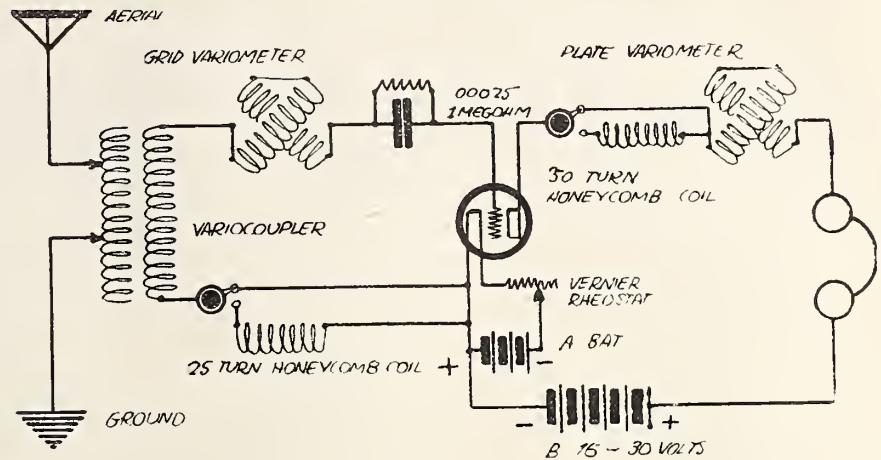 AERIAL
GRID VARIOMETER
PLATE VARIOMETER
00025
1 MEGOHM
30 TURN
HONEYCOMB COIL
VARIOCOUPLER
VERNIER
RHEOSTAT
25 TURN HONEYCOMB COIL
+
A BAT
-
GROUND
-
+
B 16 - 30 VOLTS